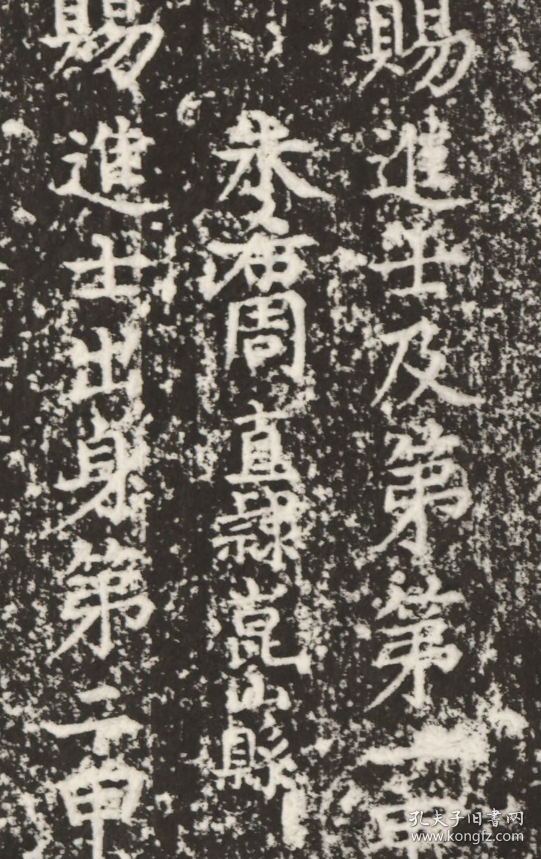 賜進士及第第一甲
朱希周直隸崑山縣
賜進士出身第二甲
孔夫子旧书网
www.kongfz.com